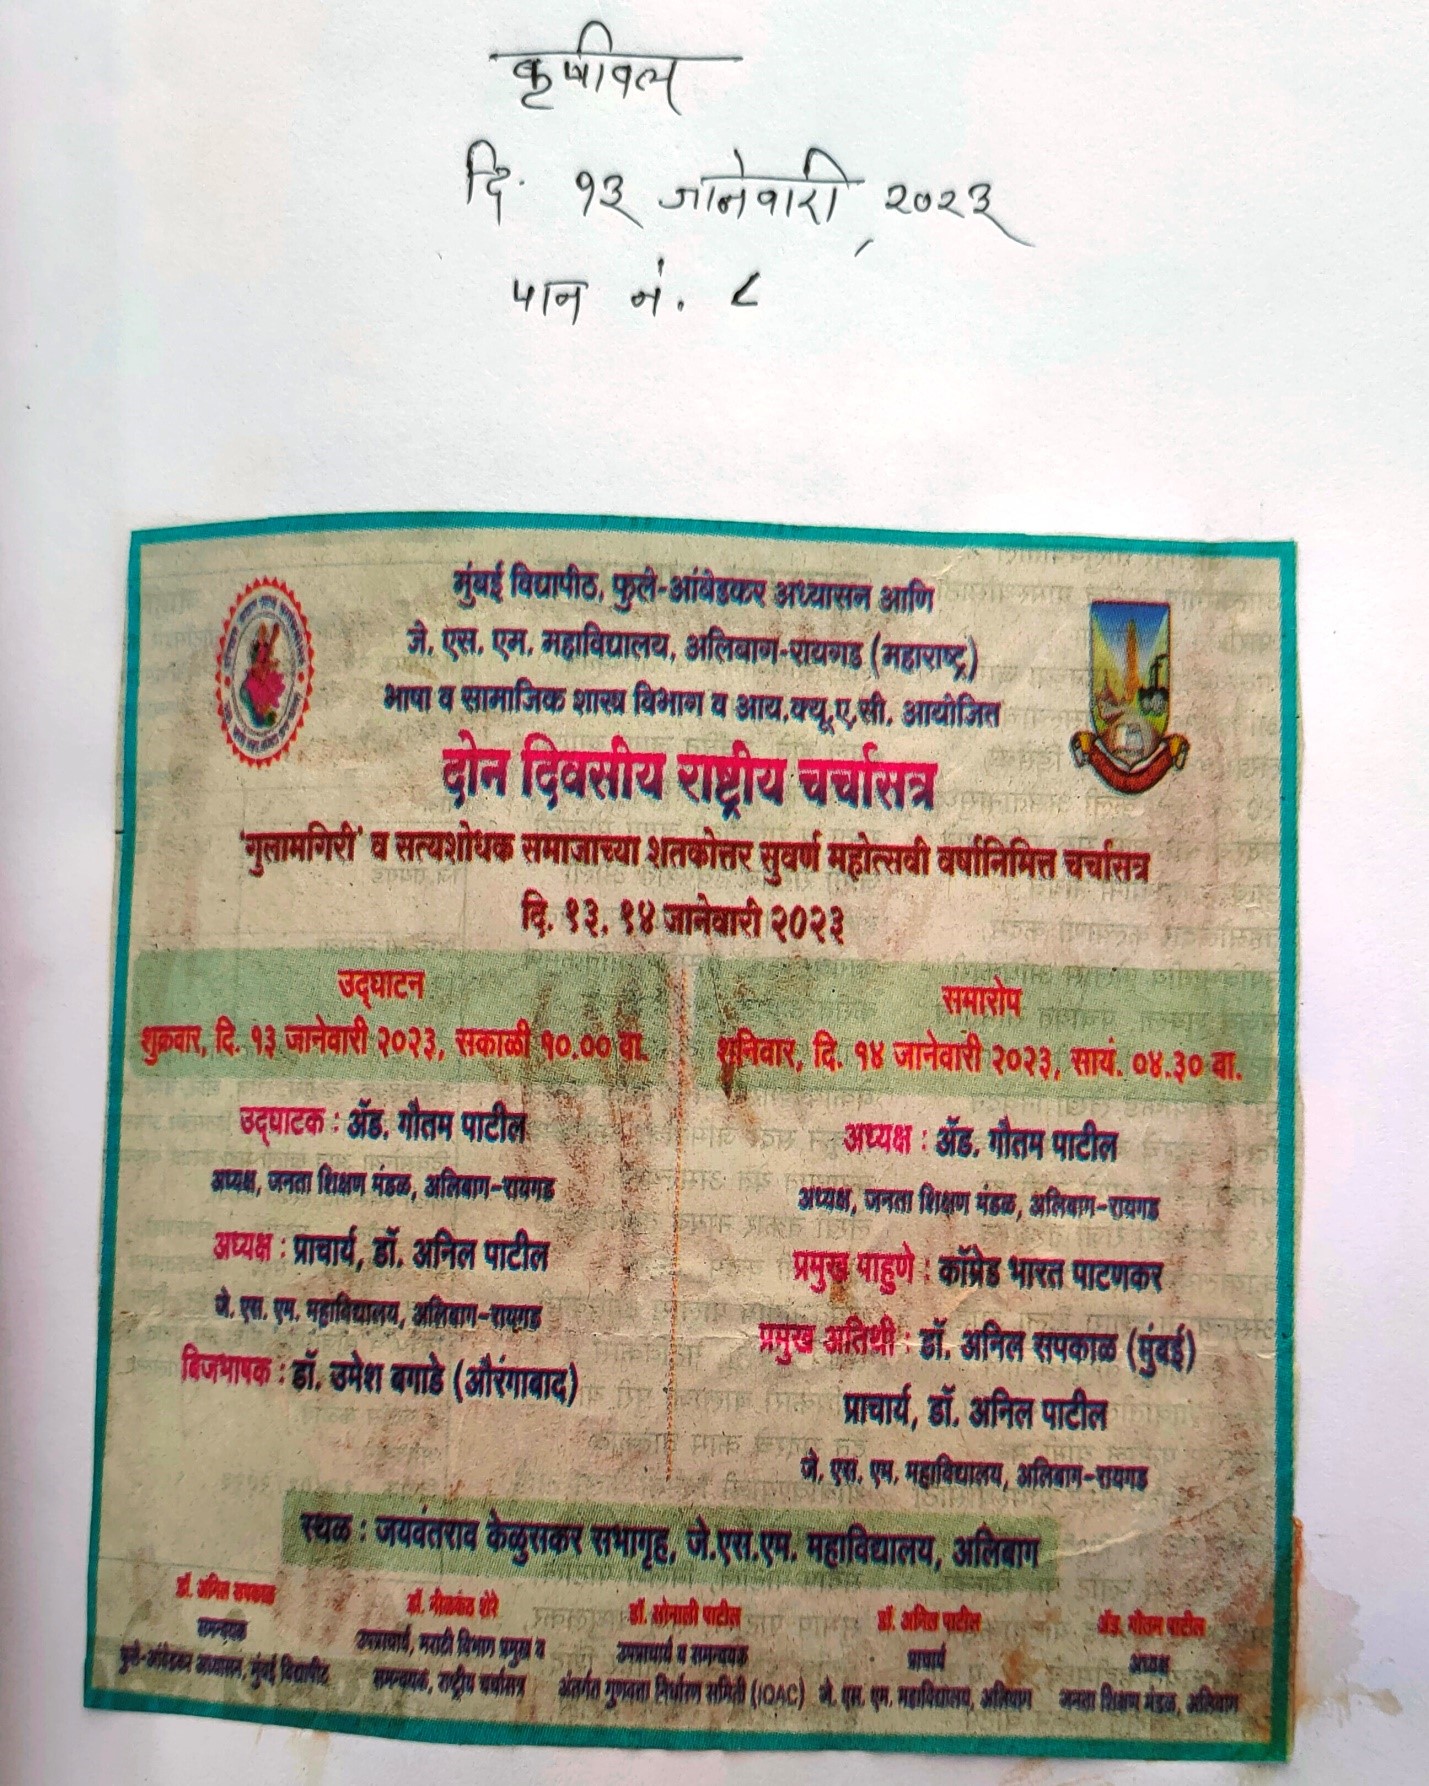 कृषीवल
दि. १३ जानेवारी, २०२३
पान नं. ८
मुंबई विद्यापीठ, फुले-आंबेडकर अध्यासन आणि
जे. एस. एम. महाविद्यालय, अलिबाग-रायगड (महाराष्ट्र)
भाषा व सामाजिक शास्त्र विभाग व आय.क्यू.ए.सी. आयोजित
दोन दिवसीय राष्ट्रीय चर्चासत्र
'गुलामगिरी' व सत्यशोधक समाजाच्या शतकोत्तर सुवर्ण महोत्सवी वर्षानिमित्त चर्चासत्र
दि. १३, १४ जानेवारी २०२३
उद्‌घाटन
शुक्रवार, दि. १३ जानेवारी २०२३, सकाळी १०.०० वा.
उद्‌घाटक : ॲड. गौतम पाटील
अध्यक्ष, जनता शिक्षण मंडळ, अलिबाग-रायगड
अध्यक्ष : प्राचार्य, डॉ. अनिल पाटील
जे. एस. एम. महाविद्यालय, अलिबाग-रायगड
बिजभाषक : डॉ. उमेश बगाडे (औरंगाबाद)
समारोप
शनिवार, दि. १४ जानेवारी २०२३, सायं. ०४.३० वा.
अध्यक्ष : ॲड. गौतम पाटील
अध्यक्ष, जनता शिक्षण मंडळ, अलिबाग-रायगड
प्रमुख पाहुणे : कॉम्रेड भारत पाटणकर
प्रमुख अतिथी : डॉ. अनिल सपकाळ (मुंबई)
प्राचार्य, डॉ. अनिल पाटील
जे. एस. एम. महाविद्यालय, अलिबाग-रायगड
स्थळ : जयवंतराव केळुसकर सभागृह, जे.एस.एम. महाविद्यालय, अलिबाग
डॉ. अनिल सपकाळ
समन्वयक
फुले-आंबेडकर अध्यासन, मुंबई विद्यापीठ
डॉ. नीळकंठ शेरे
उपप्राचार्य, मराठी विभाग प्रमुख व
समन्वयक, राष्ट्रीय चर्चासत्र
डॉ. सोनाली पाटील
उपप्राचार्य व समन्वयक
अंतर्गत गुणवत्ता निर्धारण समिती (IQAC)
डॉ. अनिल पाटील
प्राचार्य
जे. एस. एम. महाविद्यालय, अलिबाग
ॲड. गौतम पाटील
अध्यक्ष
जनता शिक्षण मंडळ, अलिबाग